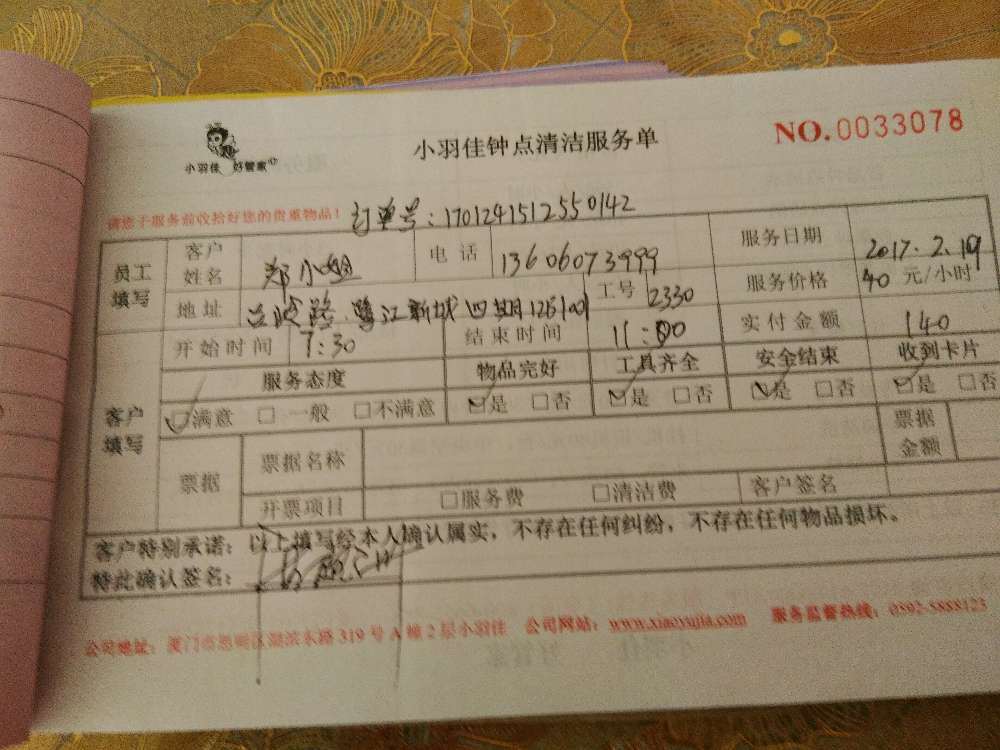 小羽佳 好管家
小羽佳钟点清洁服务单
NO.0033078
请您于服务前收拾好您的贵重物品!
订单号:1701241512550142
员工填写 客户姓名 郑小姐 电话 13606073999 服务日期 2017.2.19
地址 鹭江新城四期 工号 2330 服务价格 40 元/小时
开始时间 7:30 结束时间 11:00 实付金额 140
客户填写 服务态度 物品完好 工具齐全 安全结束 收到卡片
☑满意 □一般 □不满意 ☑是 □否 ☑是 □否 ☑是 □否 ☑是 □否
票据 票据名称 票据金额
开票项目 □服务费 □清洁费 客户签名
客户特别承诺:以上填写经本人确认属实,不存在任何纠纷,不存在任何物品损坏。
特此确认签名:
公司地址:厦门市思明区湖滨东路319号A幢2层小羽佳 公司网站:www.xiaoyujia.com 服务监督热线:0592-5888123